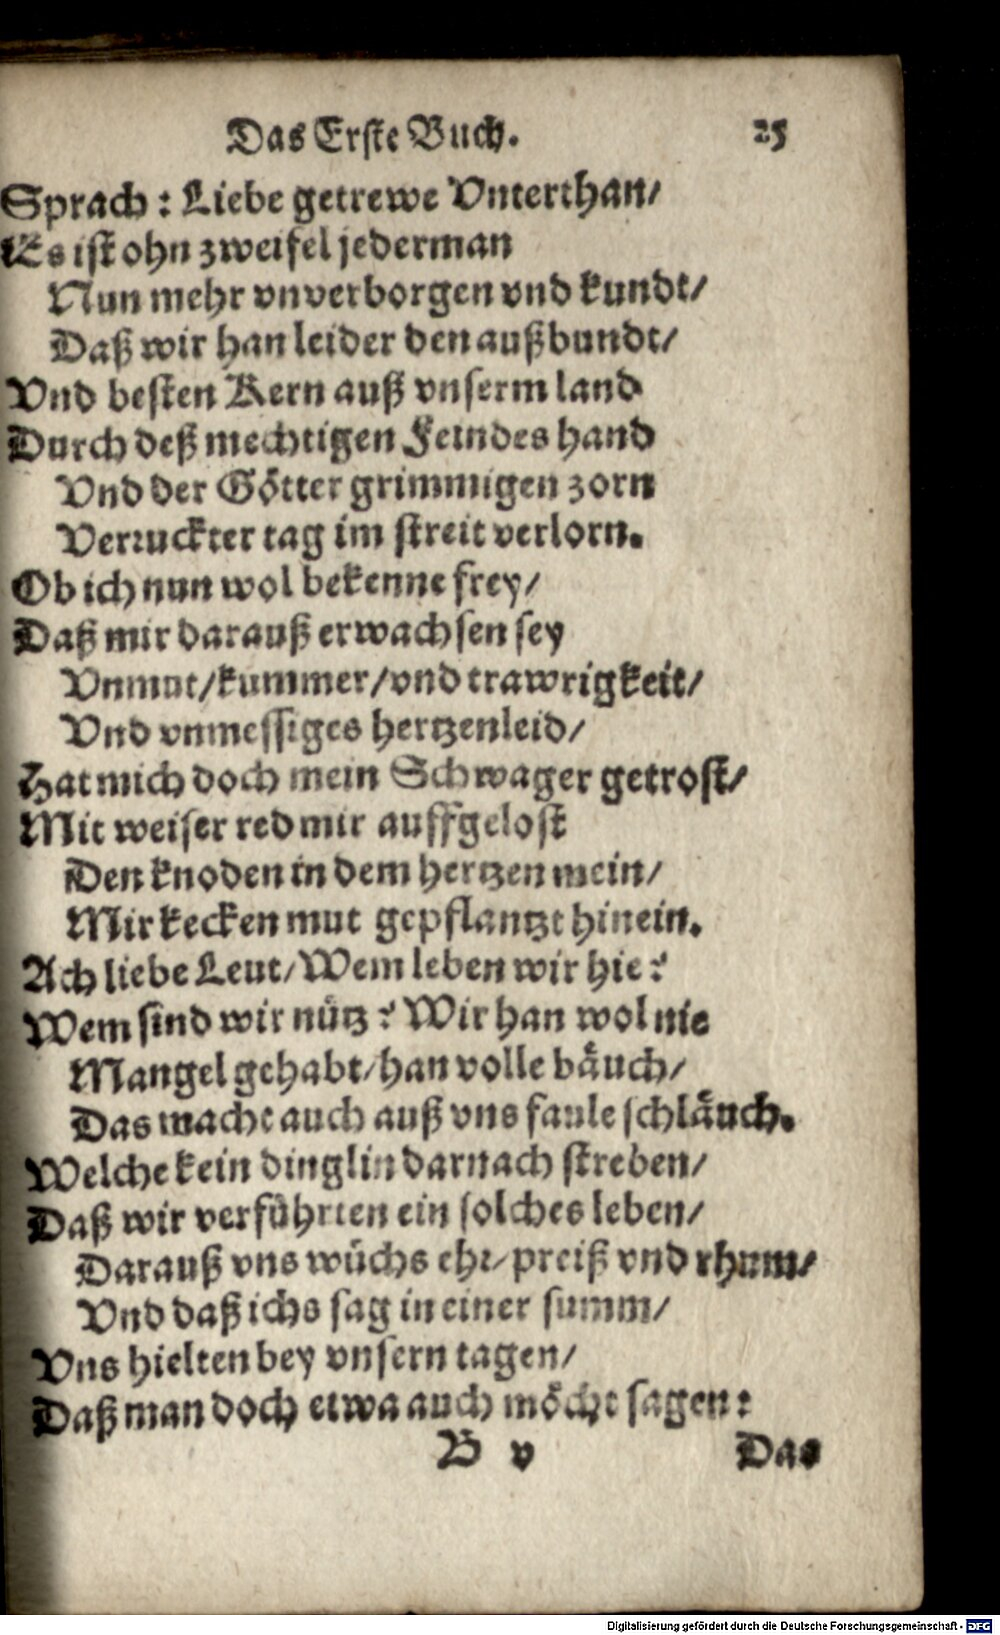 Das Erste Buch. 25
Sprach : Liebe getrewe Vnterthan/
Es ist ohn zweifel jederman
Nun mehr vnverborgen vnd kundt/
Daß wir han leider den außbundt/
Vnd besten Kern auß vnserm land
Durch deß mechtigen Feindes hand
Vnd der Götter grimmigen zorn
Verruckter tag im streit verlorn.
Ob ich nun wol bekenne frey/
Daß mir darauß erwachsen sey
Vnmut/kummer/vnd trawrigkeit/
Vnd vnmessiges hertzenleid/
Hat mich doch mein Schwager getrost/
Mit weiser red mir auffgelost
Den knoden in dem hertzen mein/
Mir kecken mut gepflantzt hinein.
Ach liebe Leut/Wem leben wir hie?
Wem sind wir nütz? Wir han wol nie
Mangel gehabt/han volle bäuch/
Das macht auch auß vns faule schläuch.
Welche kein dinglin darnach streben/
Daß wir verführten ein solches leben/
Darauß vns wüchs ehr/preiß vnd rhum/
Vnd daß ichs sag in einer summ/
Vns hielten bey vnsern tagen/
Daß man doch etwa auch möcht sagen:
B v Das
Digitalisierung gefördert durch die Deutsche Forschungsgemeinschaft - DFG